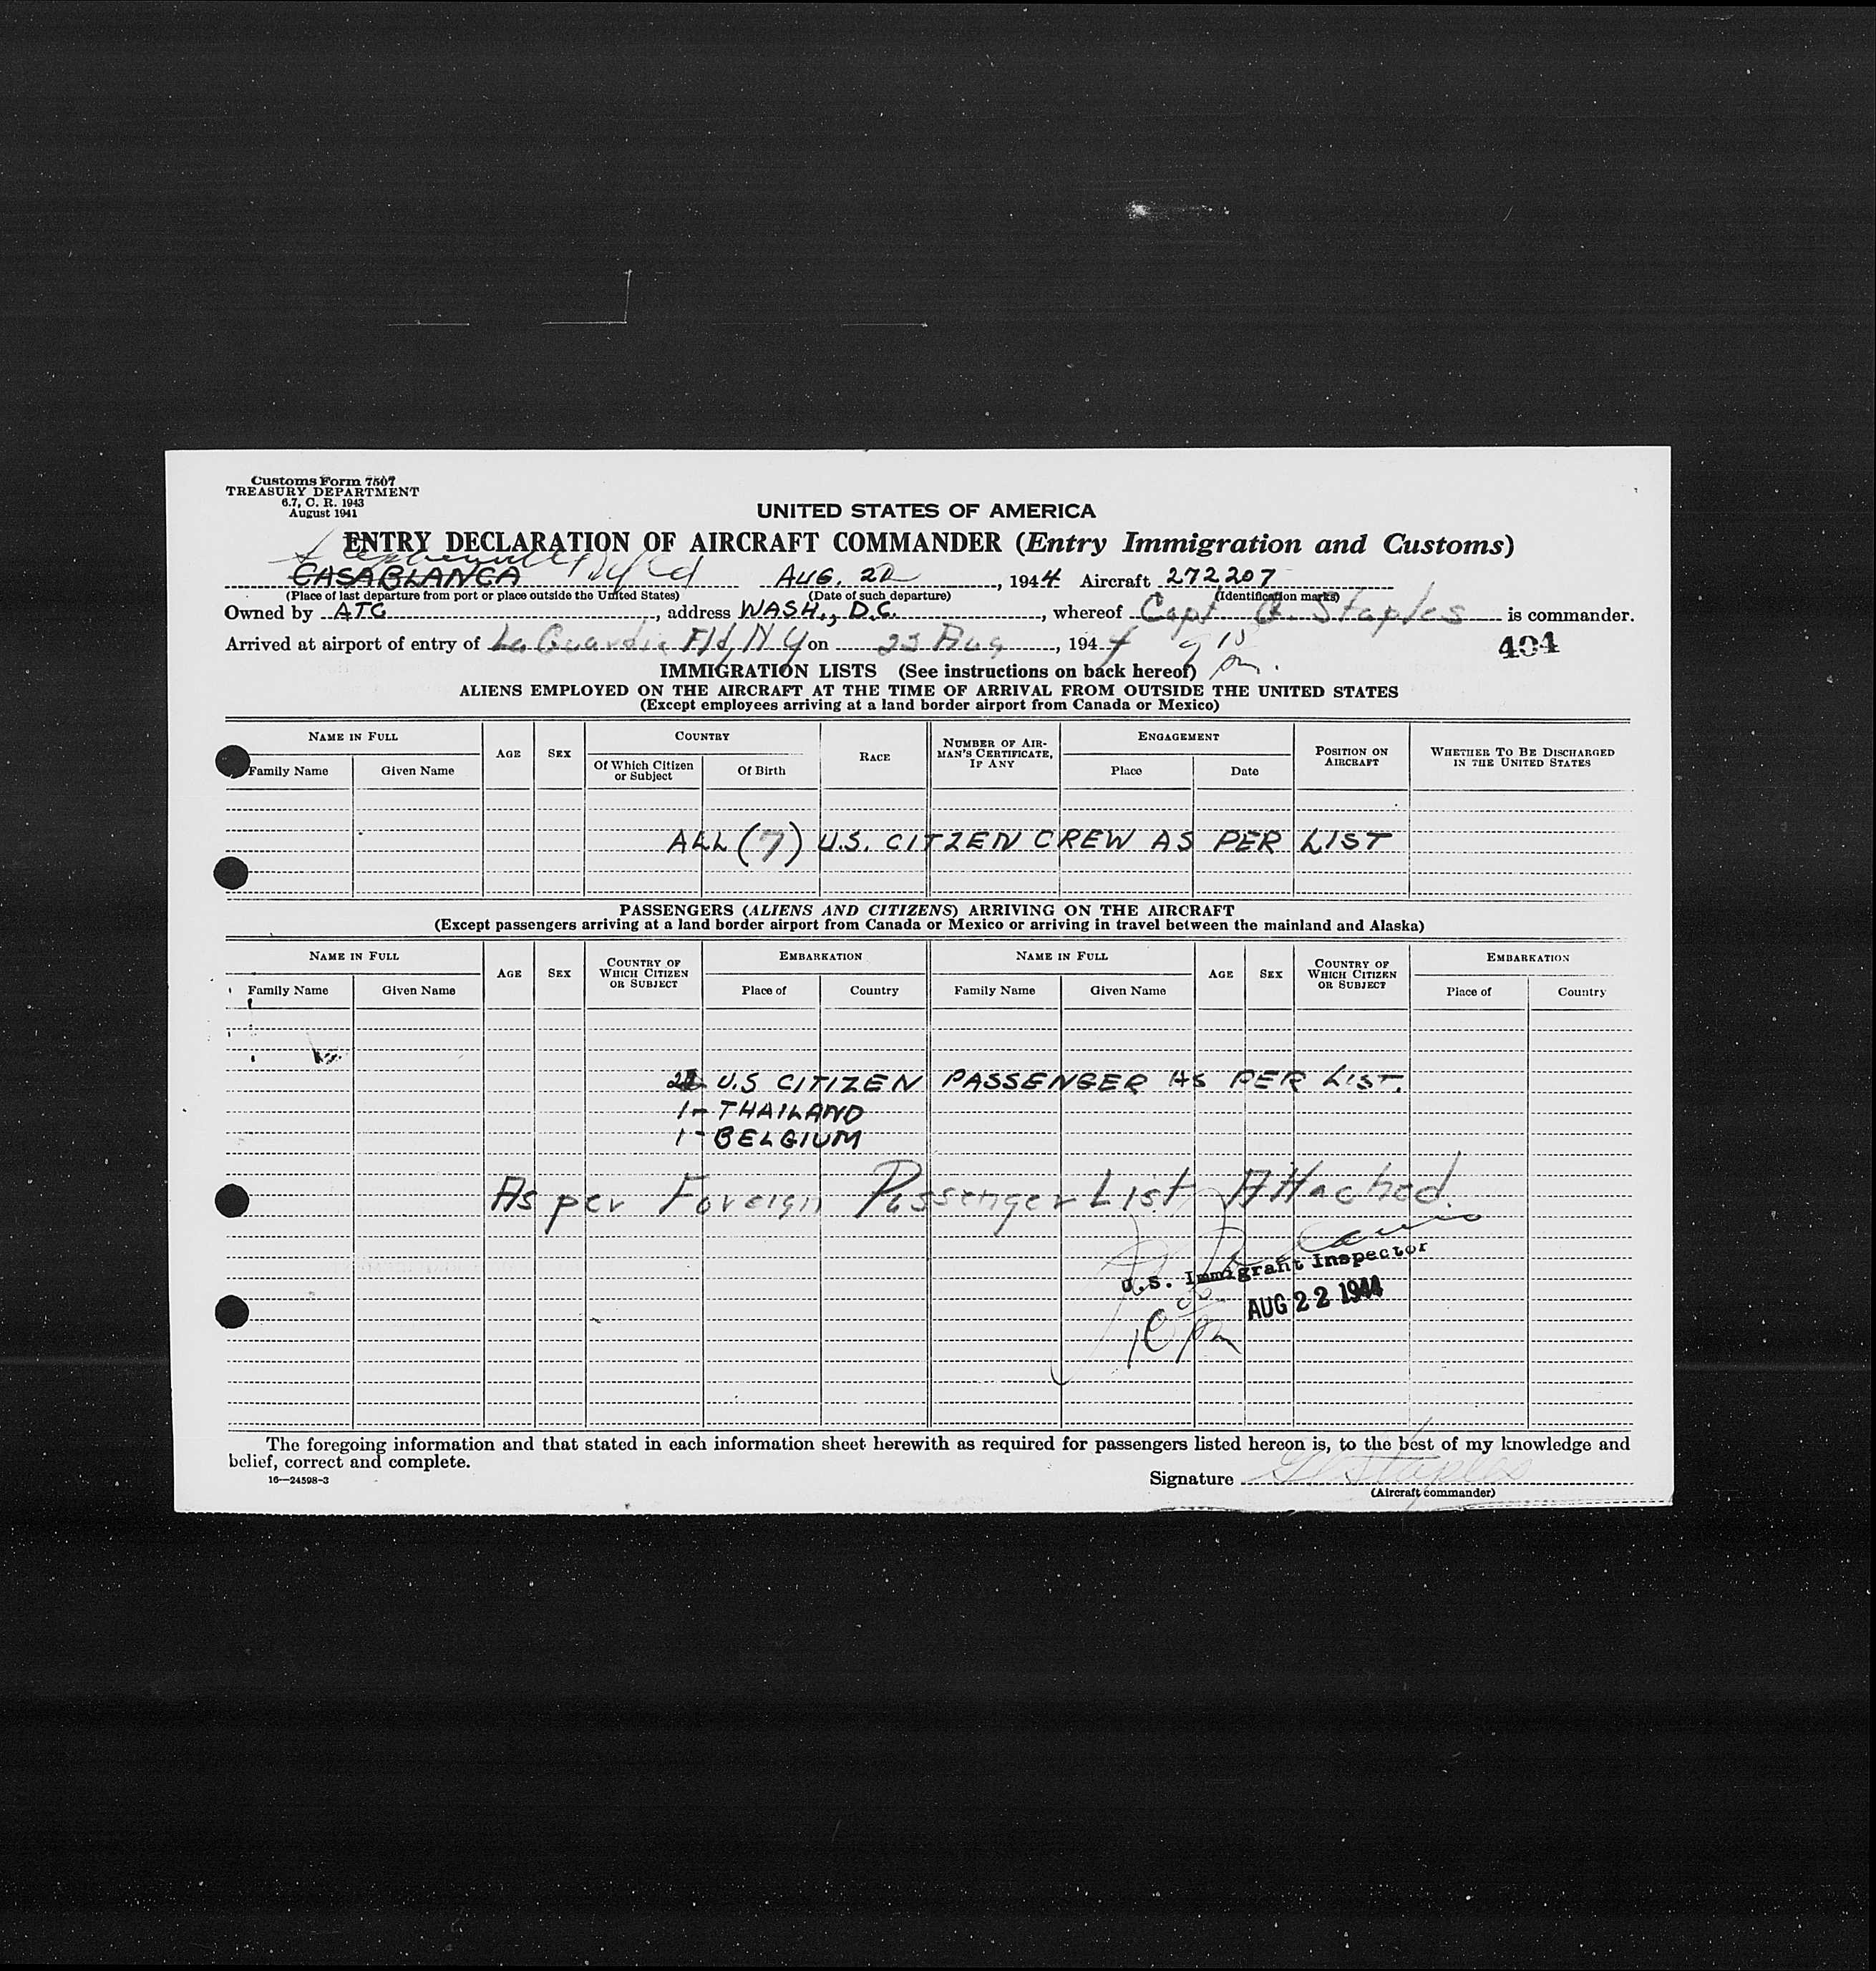 Customs Form 7507
TREASURY DEPARTMENT
6.7, C. R. 1943
August 1941
UNITED STATES OF AMERICA
ENTRY DECLARATION OF AIRCRAFT COMMANDER (Entry Immigration and Customs)
Stephenville Nfld
CASABLANCA AUG. 22, 1944 Aircraft 272,207
(Place of last departure from port or place outside the United States) (Date of such departure) (Identification marks)
Owned by ATC, address WASH., D.C., whereof Capt G. Staples is commander.
Arrived at airport of entry of La Guardia Fld, N.Y on Aug, 1944 9 15 pm. 404
IMMIGRATION LISTS (See instructions on back hereof)
ALIENS EMPLOYED ON THE AIRCRAFT AT THE TIME OF ARRIVAL FROM OUTSIDE THE UNITED STATES
(Except employees arriving at a land border airport from Canada or Mexico)
NAME IN FULL AGE SEX COUNTRY RACE NUMBER OF AIRMAN'S CERTIFICATE, IF ANY ENGAGEMENT POSITION ON AIRCRAFT WHETHER TO BE DISCHARGED IN THE UNITED STATES
Family Name Given Name Of Which Citizen or Subject Of Birth Place Date
ALL (7) U.S. CITZEN CREW AS PER LIST
PASSENGERS (ALIENS AND CITIZENS) ARRIVING ON THE AIRCRAFT
(Except passengers arriving at a land border airport from Canada or Mexico or arriving in travel between the mainland and Alaska)
NAME IN FULL AGE SEX COUNTRY OF WHICH CITIZEN OR SUBJECT EMBARKATION NAME IN FULL AGE SEX COUNTRY OF WHICH CITIZEN OR SUBJECT EMBARKATION
Family Name Given Name Place of Country Family Name Given Name Place of Country
U.S CITIZEN PASSENGER AS PER LIST.
1- THAILAND
1- BELGIUM
As per Foreign Passenger List Attached.
U.S. Immigrant Inspector
AUG 22 1944
10 pm
The foregoing information and that stated in each information sheet herewith as required for passengers listed hereon is, to the best of my knowledge and
belief, correct and complete.
16—24598-3
Signature G Staples
(Aircraft commander)